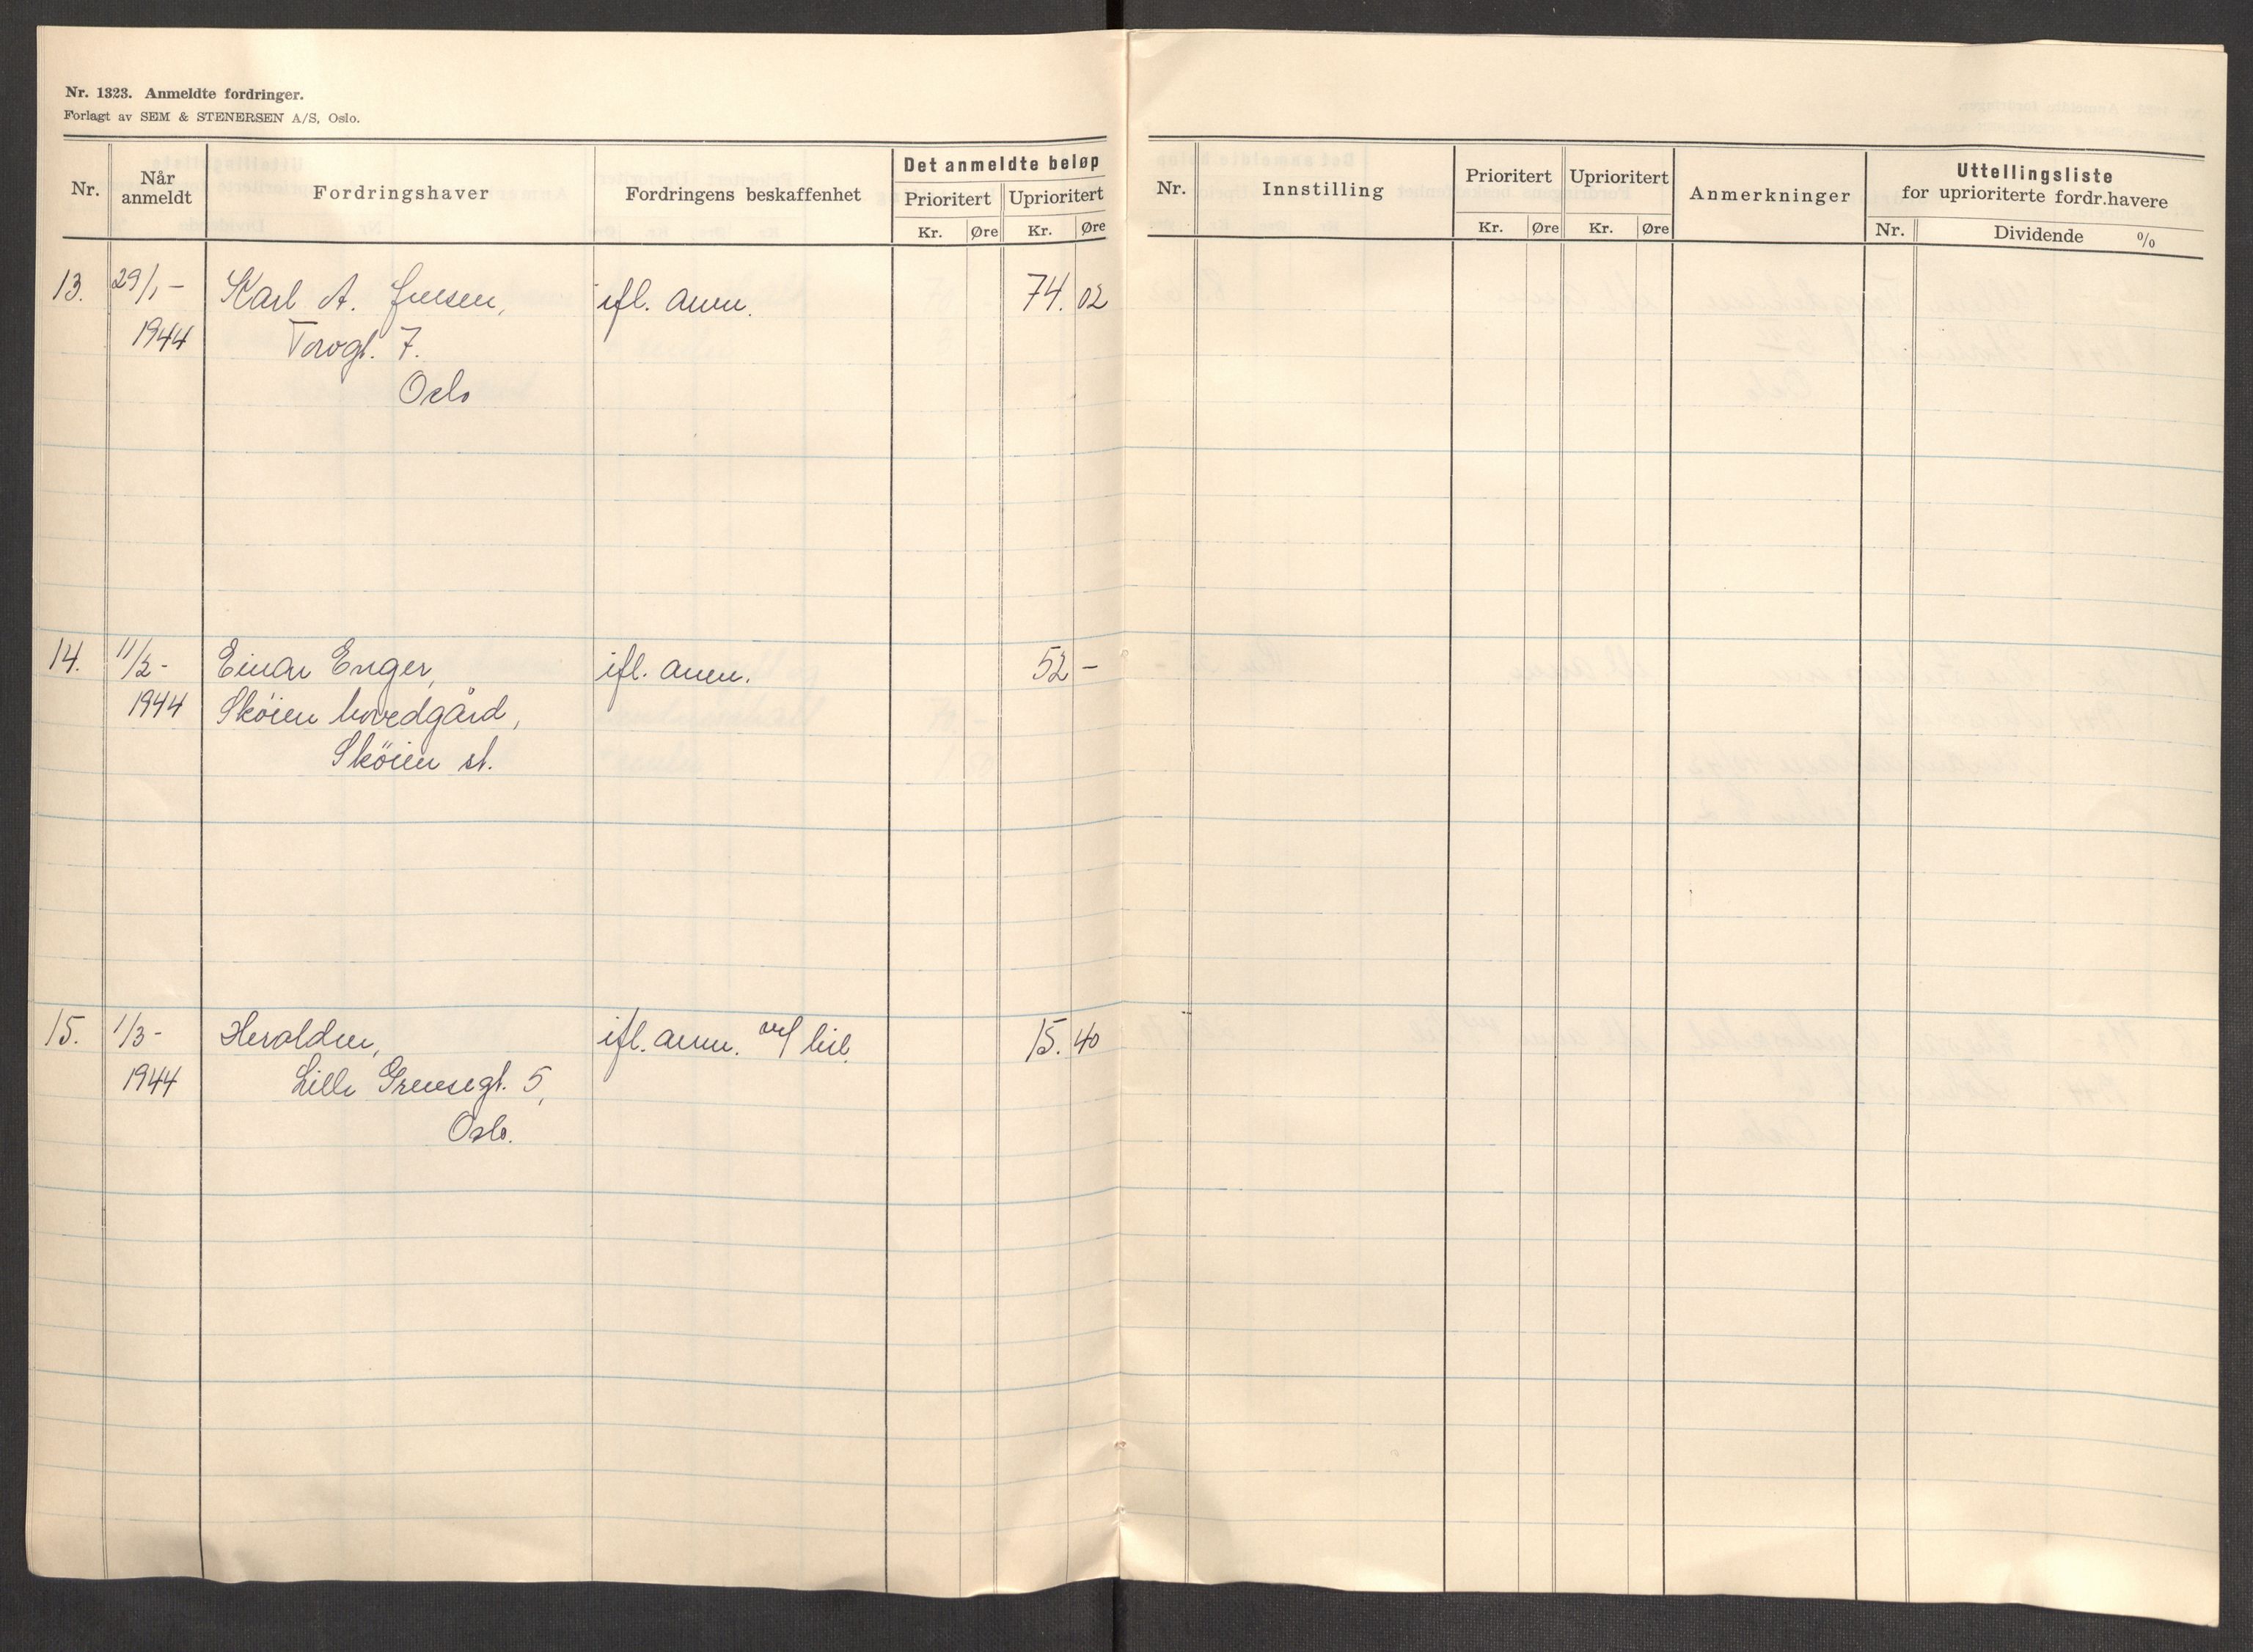 Nr. 1323. Anmeldte fordringer.
Forlagt av SEM & STENERSEN A/S, Oslo.
Nr. Når anmeldt Fordringshaver Fordringens beskaffenhet Det anmeldte beløp Prioritert Uprioritert Kr. Øre Kr. Øre
Nr. Innstilling Prioritert Uprioritert Kr. Øre Kr. Øre Anmerkninger Uttellingsliste for uprioriterte fordr.havere Nr. Dividende %
13. 29/1- Karl A. Jensen, ifl. anm. 74. 02
1944 Torvgt. 7.
Oslo
14. 11/2- Einar Enger, ifl. anm. 52 -
1944 Sköien hovedgård,
Sköien st.
15. 1/3- Heralden, ifl. anm. m/ bil. 15. 40
1944 Lille Grensegt. 5,
Oslo.